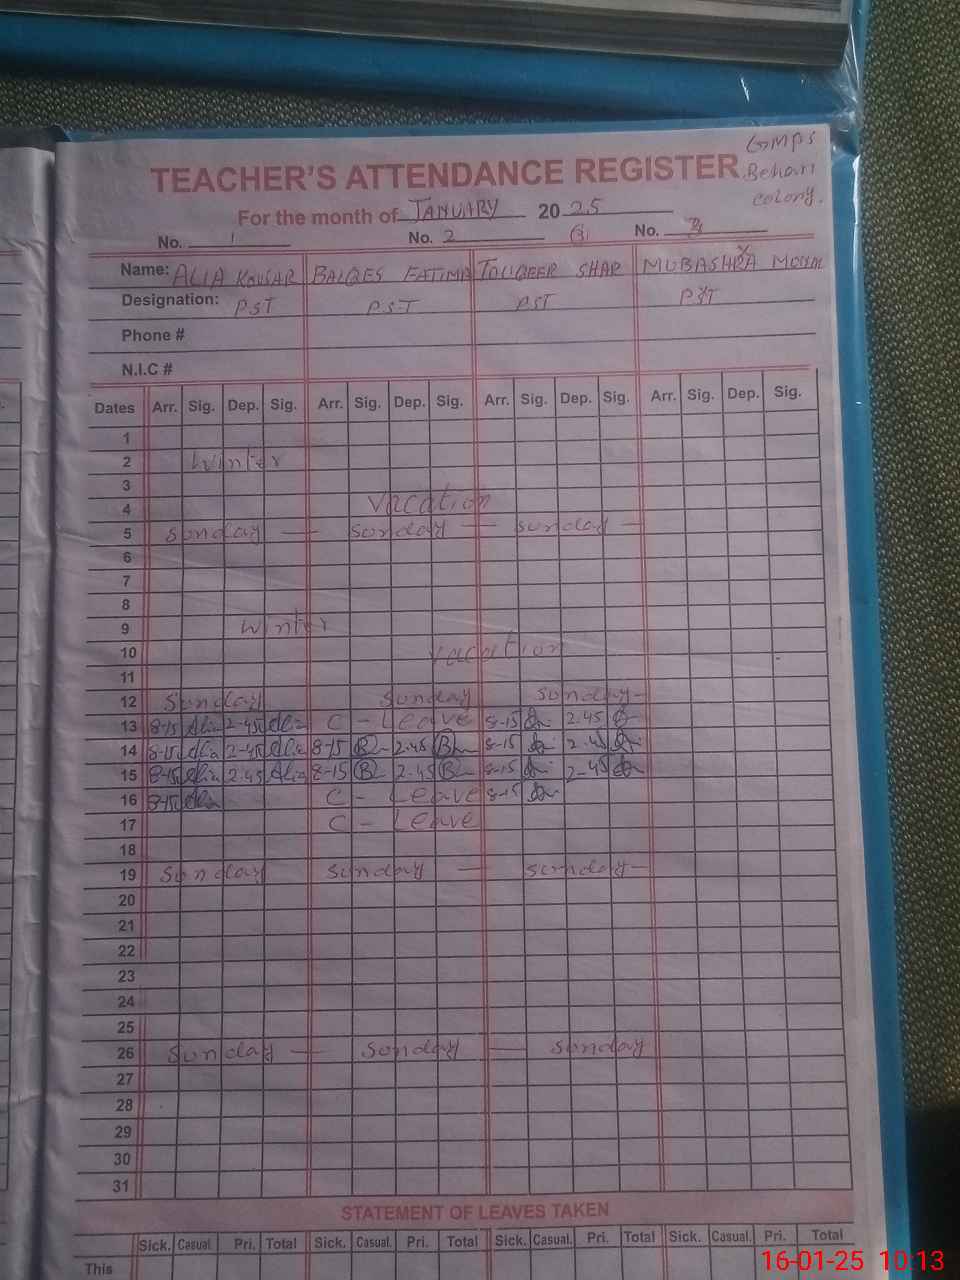 GMPS
TEACHER'S ATTENDANCE REGISTER Behari
colony.
For the month of JANUARY 2025
No. 1 No. 2 No. 3
Name: ALIA KOUSAR BALQES FATIMA TOUQEER SHAR MUBASHRA
Designation: PST PST PST PST
Phone #
N.I.C #
Dates Arr. Sig. Dep. Sig. Arr. Sig. Dep. Sig. Arr. Sig. Dep. Sig. Arr. Sig. Dep. Sig.
1
2 Winter
3
4 Vacation
5 Sunday — Sunday — Sunday —
6
7
8
9 Winter
10 Vacation
11
12 Sunday Sunday Sunday-
13 8-15 Alia 2-45 Alia C - Leave 8-15 2.45
14 8-15 Alia 2-45 Alia 8-15 B 2.45 B 8-15 2.45
15 8-15 Alia 2.45 Alia 8-15 B 2-45 B 8-15 2-45
16 8-15 Alia C - Leave 8-15
17 C - Leave
18
19 Sunday Sunday — Sunday-
20
21
22
23
24
25
26 Sunday — Sunday — Sunday
27
28
29
30
31
STATEMENT OF LEAVES TAKEN
Sick. Casual. Pri. Total Sick. Casual. Pri. Total Sick. Casual. Pri. Total Sick. Casual. Pri. Total
This
16-01-25 10:13